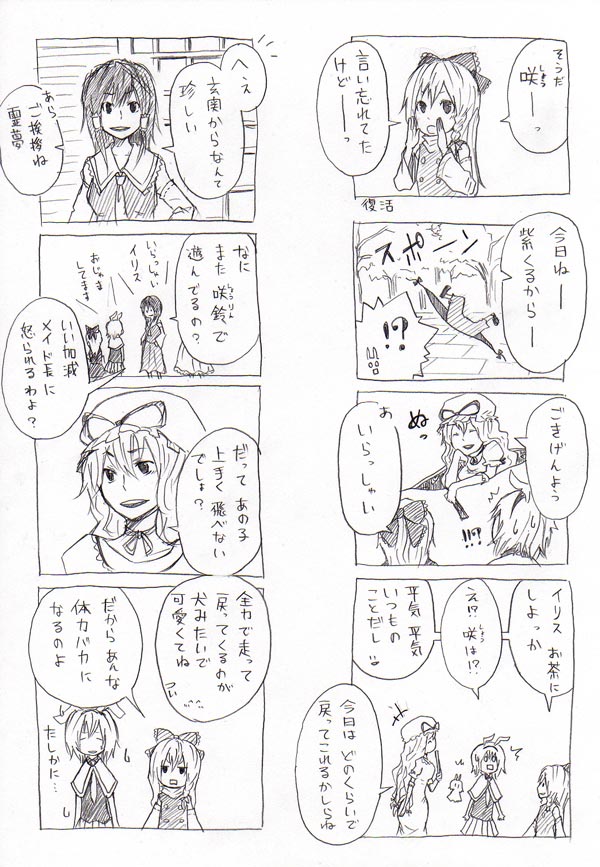 そうだ
咲ーーっ
しょう
言い忘れてた
けどーーっ
復活
今日ねーー
紫くるからーー
スポーン
!?
ごきげんよう
ぬっ
あ
いらっしゃい
!!?
イリス お茶に
しよっか
え!? 咲は!?
しょう
平気 平気
いつもの
ことだし
今日は どのくらいで
戻ってこれるかしらね
へえ
玄関からなんて
珍しい
あら
ご挨拶ね
霊夢
なに
また 咲鈴で
しょうりん
遊んでるの?
いらっしゃい
イリス
おじゃま
してます
いい加減
メイド長に
怒られるわよ?
だって あの子
上手く飛べない
でしょ?
全力で走って
戻ってくるのが
犬みたいで
可愛くてね
つい
だからあんな
体力バカに
なるのよ
たしかに…